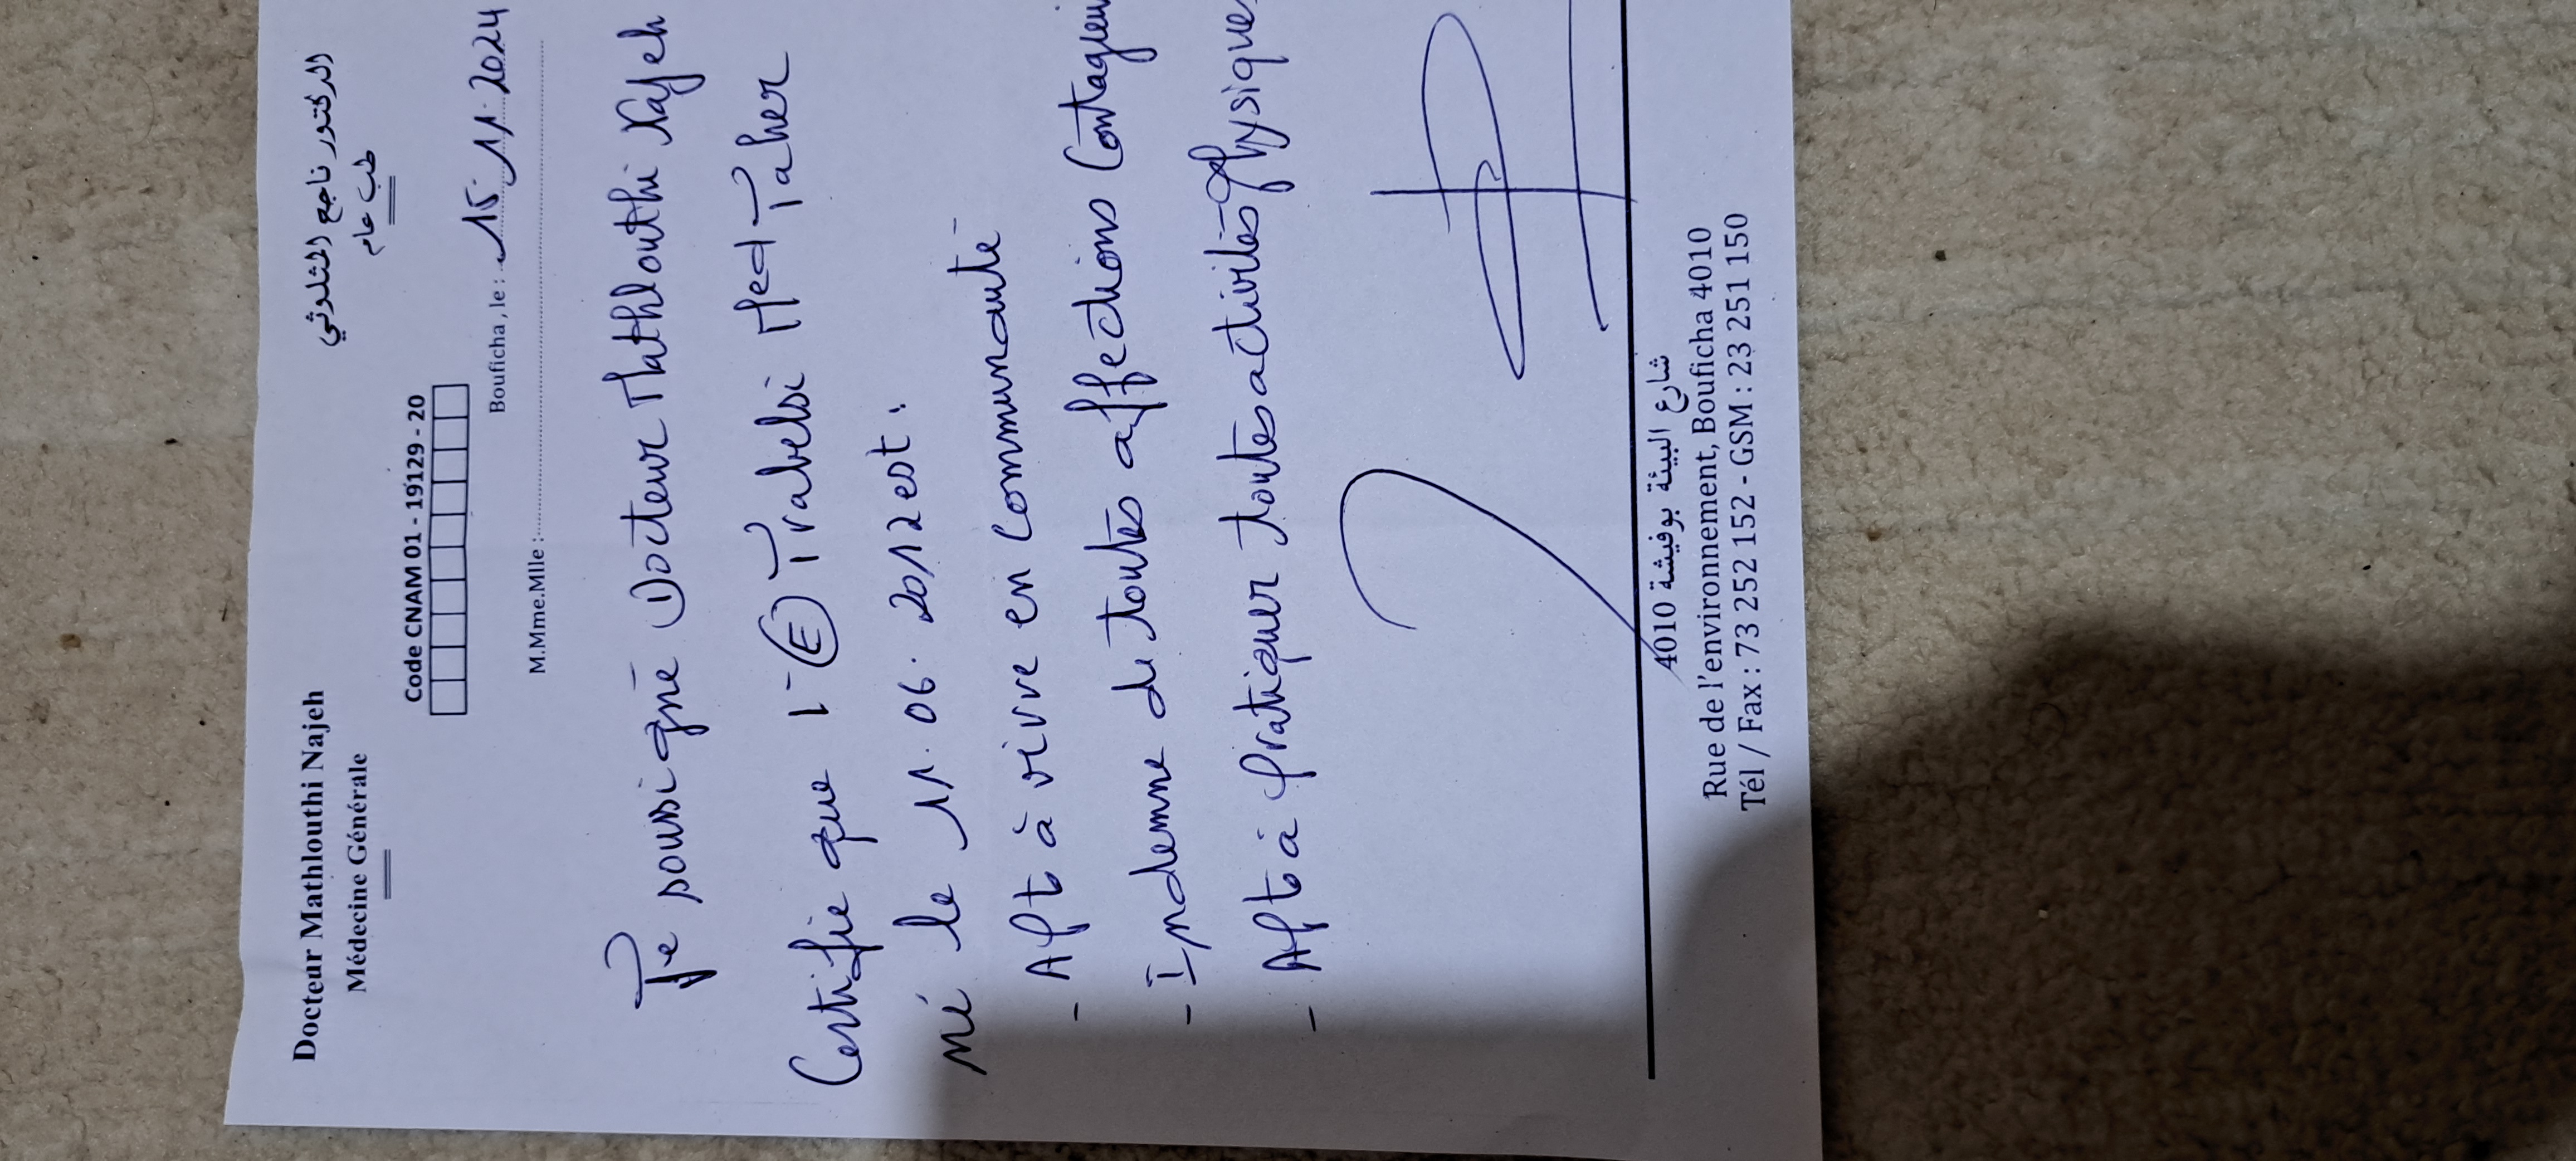 Docteur Mathlouthi Najeh
Médecine Générale
الدكتور ناجع المثلوثي
طب عام
Code CNAM 01 - 19129 - 20
Bouficha, le : 15.11.2024
M.Mme.Mlle :
Je soussigné Docteur Mathlouthi Najeh
Certifie que l'(E) Trabelsi Med Taher
né le 11.06.2012 est.
- Apt à vivre en Communauté
- Indemne de toutes affections Contagieu
- Apt à pratiquer toutes activités physique
شارع البيئة بوفيشة 4010
Rue de l'environnement, Bouficha 4010
Tél / Fax : 73 252 152 - GSM : 23 251 150